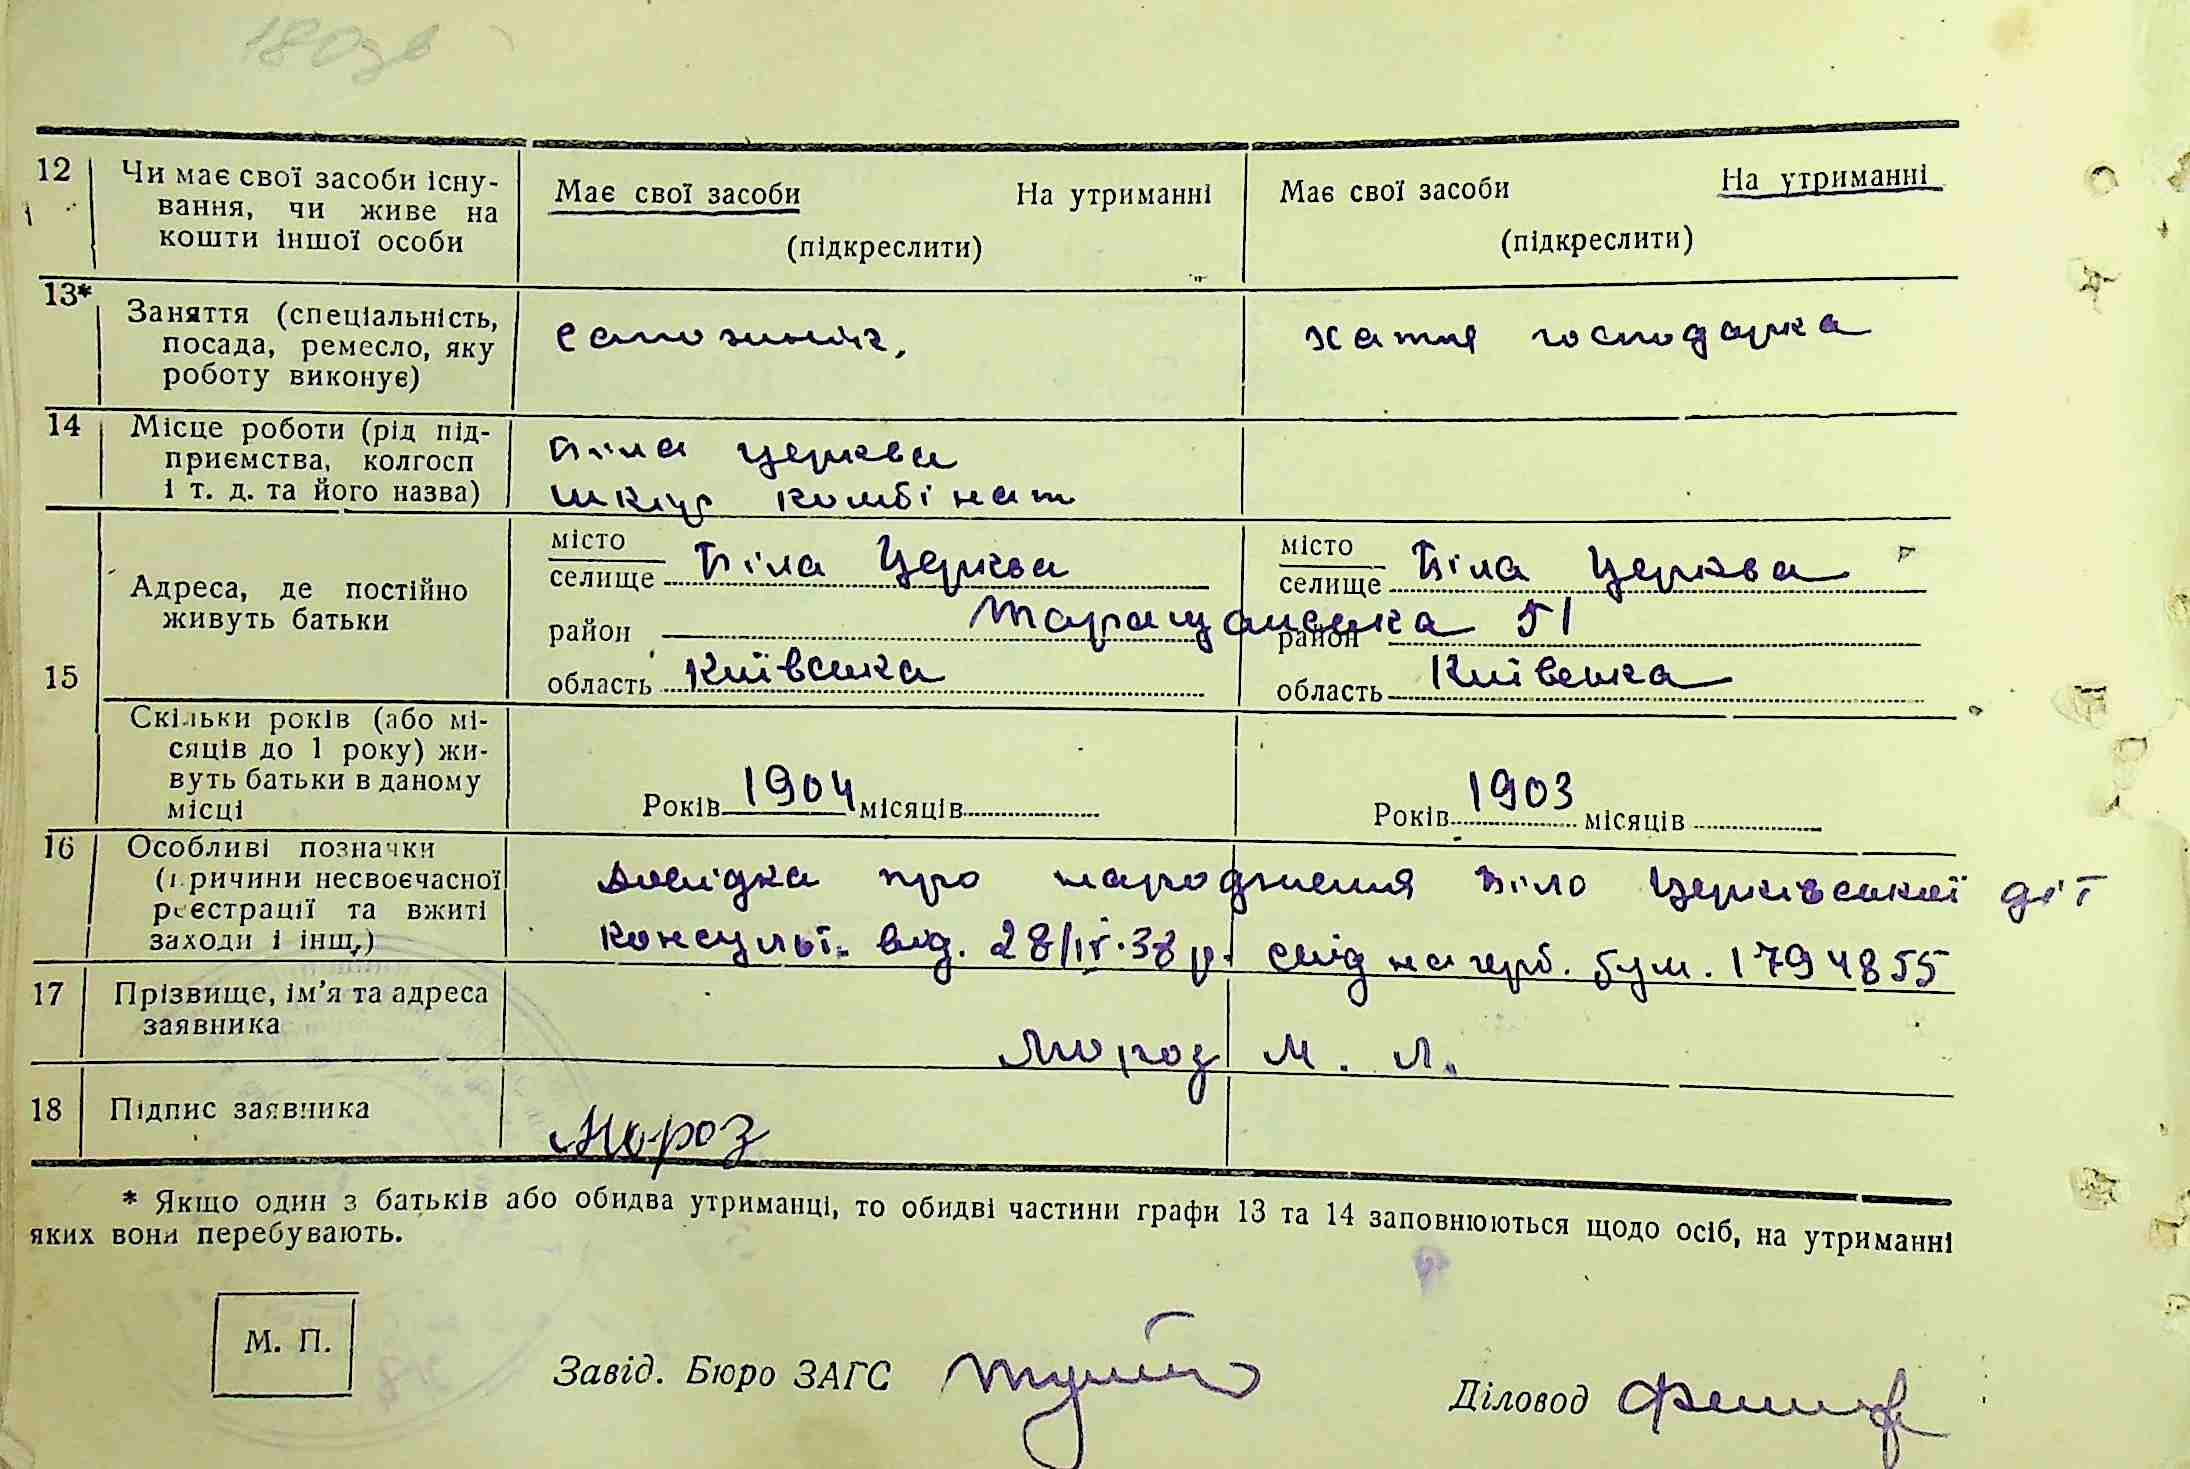 180зв
12 Чи має свої засоби існу-
вання, чи живе на
кошти іншої особи
Має свої засоби На утриманні
(підкреслити)
Має свої засоби На утриманні
(підкреслити)
13* Заняття (спеціальність,
посада, ремесло, яку
роботу виконує)
хатня господарка
14 Місце роботи (рід під-
приємства, колгосп
і т. д. та його назва)
Біла Церква
шкір комбінат
15 Адреса, де постійно
живуть батьки
місто
селище Біла Церква
район Таращанська 51
область Київська
місто
селище Біла Церква
район
область Київська
Скільки років (або мі-
сяців до 1 року) жи-
вуть батьки в даному
місці
Років 1904 місяців
Років 1903 місяців
16 Особливі позначки
(причини несвоєчасної
реєстрації та вжиті
заходи і інш.)
Довідка про народження Біло Церківської діт
консульт. від. 28/IV.38 р. свід на герб. бум. 1794855
17 Прізвище, ім’я та адреса
заявника
Мороз М. Л.
18 Підпис заявника
Мороз
* Якщо один з батьків або обидва утриманці, то обидві частини графи 13 та 14 заповнюються щодо осіб, на утриманні
яких вони перебувають.
М. П.
Завід. Бюро ЗАГС
Діловод